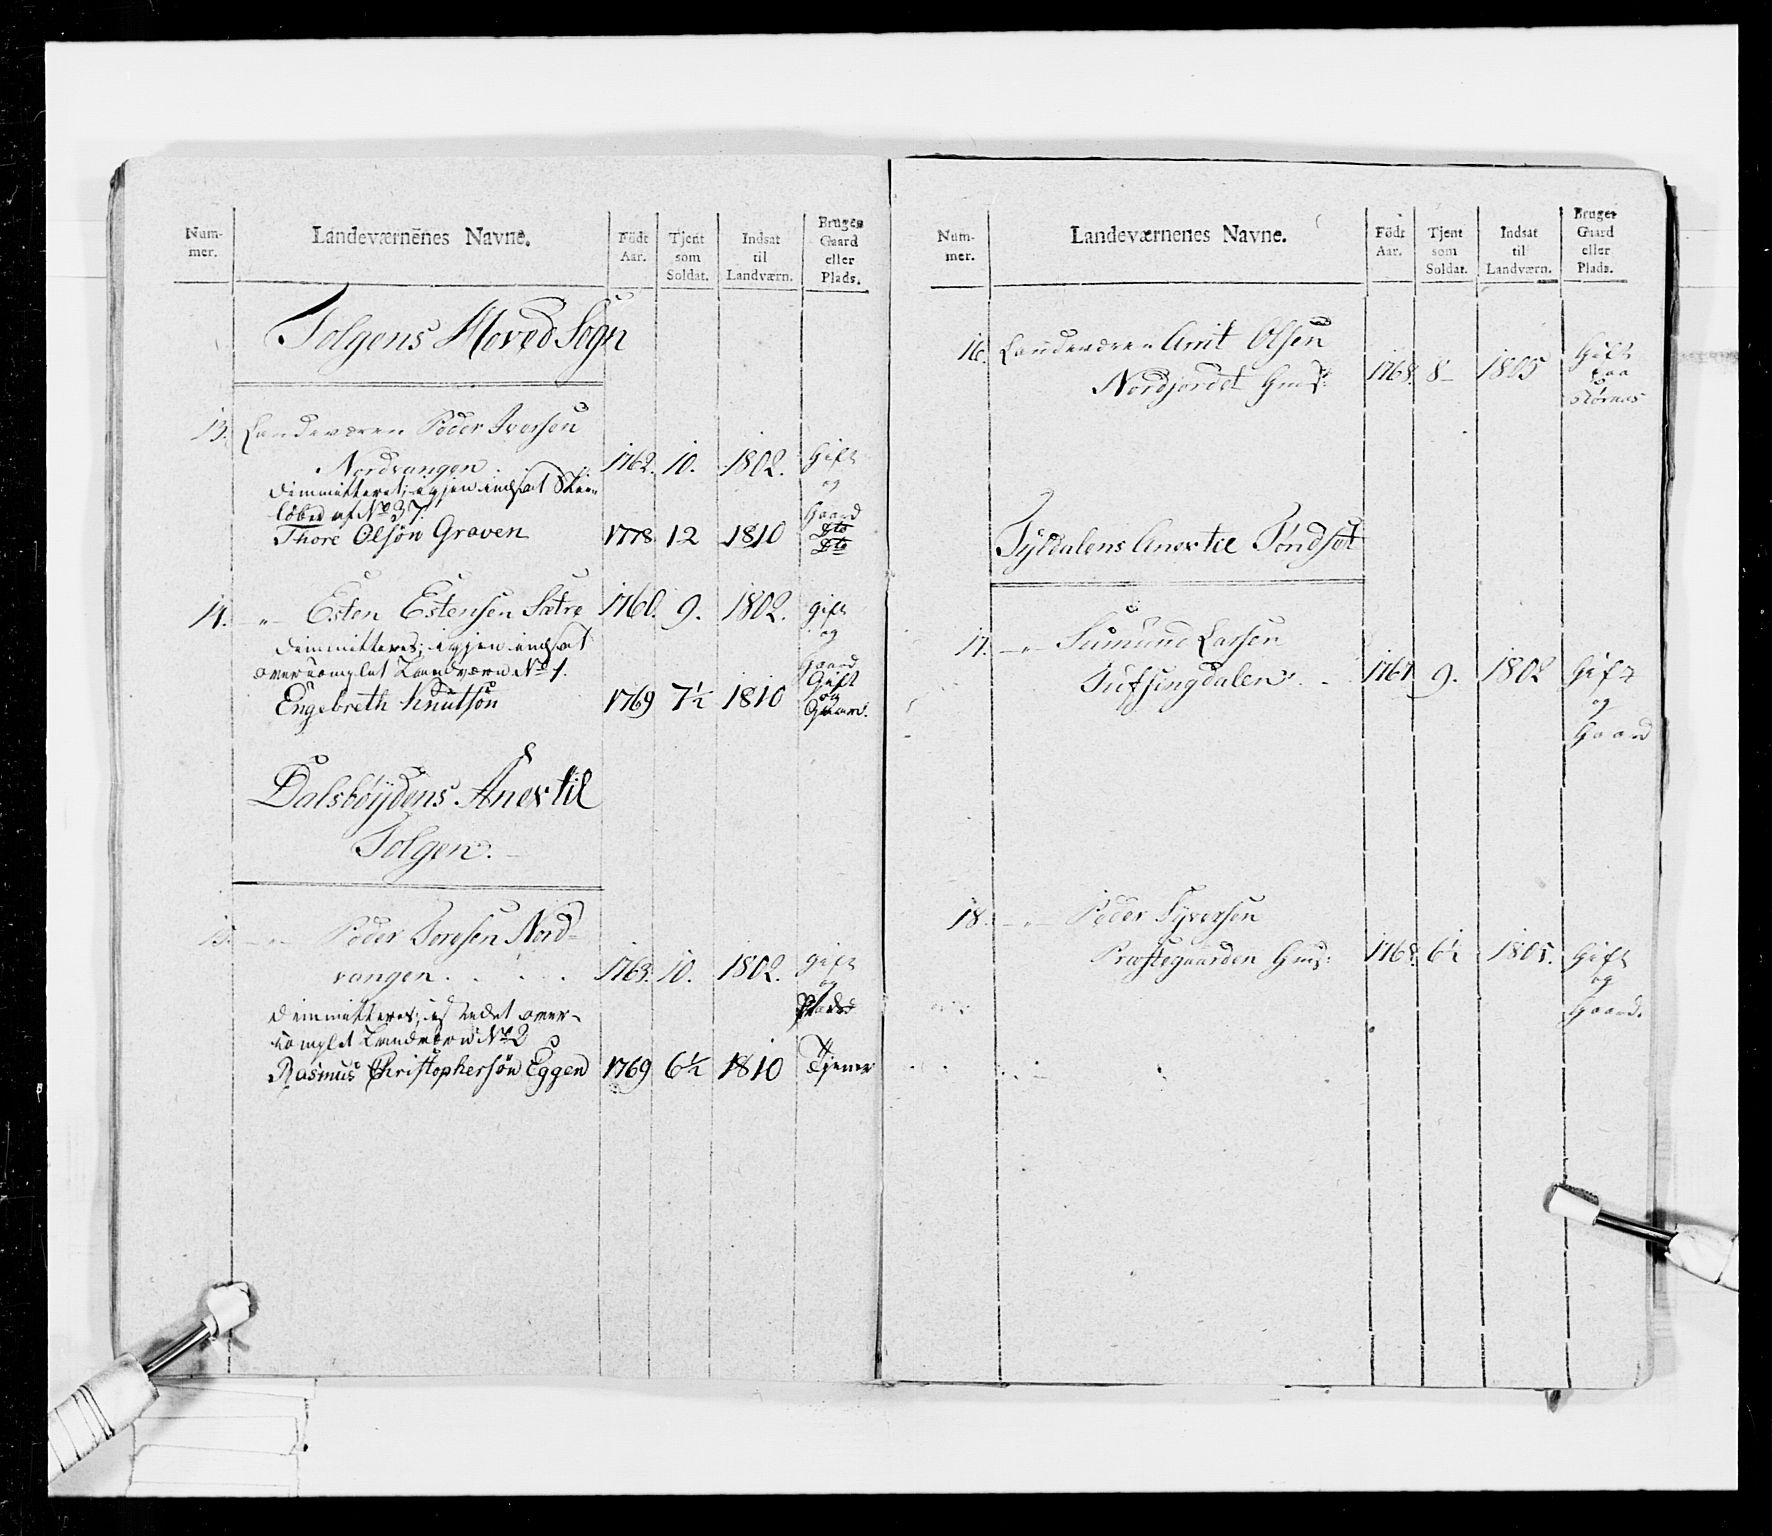 Num-
mer.
Landeværnenes Navne.
Födt
Aar.
Tjent
som
Soldat.
Indsat
til
Landværn.
Bruger
Gaard
eller
Plads.
Tolgens Hoved Sogn
13. Landeværn Peder Iversen
Nordvangen 1762. 10. 1802. Gift
og
Gaard
dimmitteret; igjen indsat Skie-
löber af No 37.
Thore Olsön Graven 1778. 12 1810 Dto
Dto
14. -„- Esten Estensen Sætre 1760. 9. 1802. Gift
og
Gaard
dimmitteres; igjen indsat
overcomplet Landværn No 1.
Engebreth Knutsön 1769 7½ 1810 Gift
og
Gaard.
Dalsböÿdens Anex til
Tolgen.
15. -„- Peder Joresen Nord-
vangen 1763. 10. 1802. Gift
og
dimmitteres; over-
complet Landværn No 2
Rasmus Christophersön Eggen 1769 6½ 1810 Tjener
Num-
mer.
Landeværnenes Navne.
Födt
Aar.
Tjent
som
Soldat.
Indsat
til
Landværn.
Bruger
Gaard
eller
Plads.
16. Landeværn Amt Olsen
Nordjordet 1768. 8- 1805 Gift
paa
Tÿldalens Anex til Töndset
17. -„- Simund Larsen
Tufsingdalen 1767 9. 1802 Gift
og
Gaard
18. -„- Peder Syversen
Præstegaarden 1768. 6½ 1805. Gift
og
Gaard.